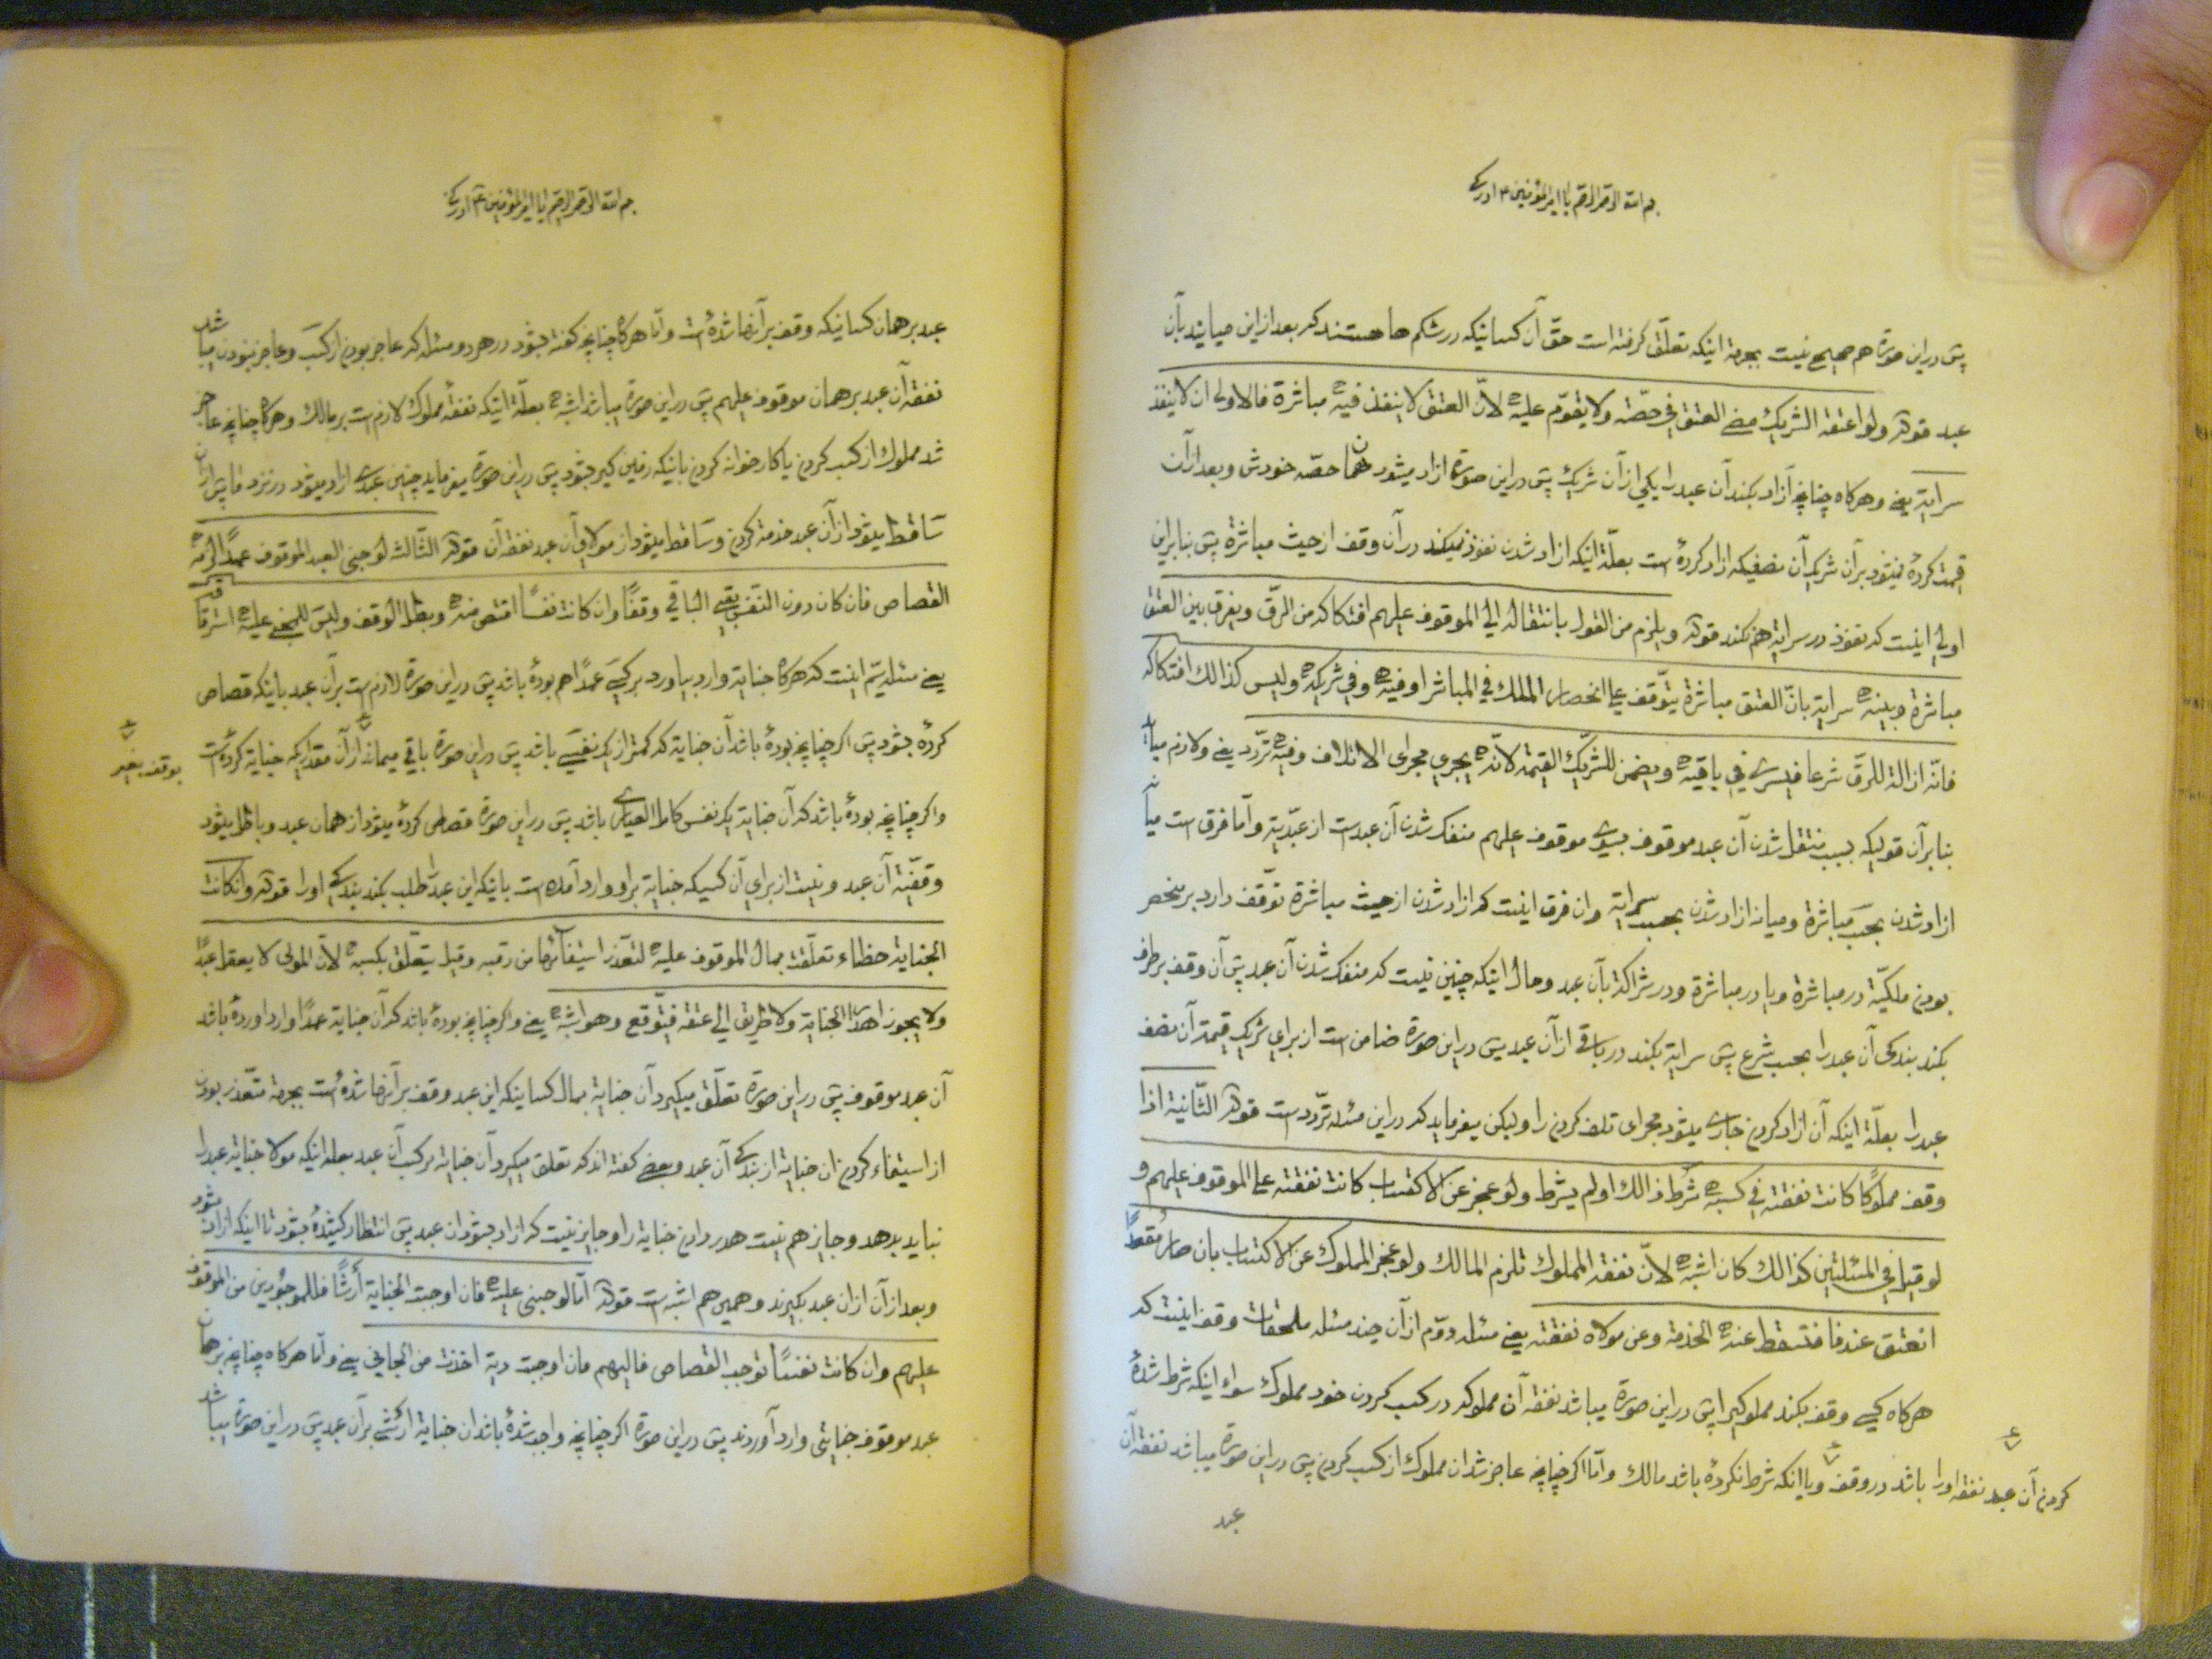 بسم الله الرحمن الرحیم یا امیرالمؤمنین ادرکنی
پس دراین صورة هم صحیح نیست بجهة اینکه تعلّق کرفته است حقّ آن کسانیکه درشکم ها هستند که بعد ازاین میایند بآن
عبد قوله ولو اعتقه الشریك مضی العتق فی حصّته ولا یقوّم علیه لانّ العتق لا ینفذ فیه مباشرة فالاولی ان لا ینفذ
سرایة یعنی وهرکاه چنانچه آزاد بکند آن عبد را یکی از آن شریك پس دراین صورة ازاد میشود همان حصّه خودش وبعد ازآن
قیمت کرده نمیشود برآن شریك آن نصفیکه ازاد کرده است بعلّة اینکه ازاد شدن نفوذ نمیکند درآن وقف از حیث مباشرة پس بنابراین
اولی اینست که نفوذ در سرایة هم نکند قوله ویلزم من القول بانتقاله الی الموقوف علیهم افتکاکه من الرقّ ویفرق بین العتق
مباشرة وبینه سرایة بانّ العتق مباشرة یتوّقف علی انحصار الملك فی المباشر او فیه وفی شریکه ولیس کذالك افتکاکه
فانّه ازالة للرقّ شرعا فیسری فی باقیه ویضمن للشریّك القیمة لانّه یجری مجری الاتلاف وفیه تردّد یعنی ولازم میاید
بنابرآن قولیکه بسبب منتقل شدن آن عبد موقوف بسوی موقوف علیهم منفك شدن آن عبداست از عبدّیة وامّا فرق است میانه
ازاد شدن بحسب مباشرة ومیانه ازاد شدن بحسب سرایة وان فرق اینست که ازاد شدن از حیث مباشرة توّقف دارد بر منحصر
بودن ملکیّة در مباشرة ویا در مباشرة ودر شراکة بآن عبد وحال اینکه چنین نیست که منفك شدن آن عبد پس آن وقف بر طرف
بکند بندکی آن عبد را بحسب شرع پس سرایة بکند در باقی از آن عبد پس دراین صورة ضامن است از برای شریك قیمة آن نصف
عبد را بعلّة اینکه آن ازاد کردن جاری میشود مجرای تلف کردن را ولیکن میفرماید که دراین مسئله تردّد است قوله الثّانیة اذا
وقف مملوکًا کانت نفقته فی کسبه شرط ذالك او لم یشرط ولو عجز عن الاکتساب کانت نفقته علی الموقوف علیهم و
لو قیل فی المسئلتین کذالك کان اشبه لانّ نفقة المملوك تلزم المالك ولو عجز المملوك عن الاکتساب بان صار مُقعدًا
انعتق عندنا فتسقط عنه الخدمة وعن مولاه نفقته یعنی مسئله دوّم ازآن چند مسئله ملحقات وقف اینست که
هرکاه کسی وقف بکند مملوکیرا پس دراین صورة میباشد نفقه آن مملوکه در کسب کردن خود مملوك سواء اینکه شرط شده
کردن آن عبد نفقه اورا باشد در وقف ویا انکه شرط نکرده باشد مالك وامّا اکر چنانچه عاجز شد ان مملوك از کسب کردن پس دراین صورة میباشد نفقه آن
عبد
بسم الله الرحمن الرحیم یا امیرالمؤمنین ادرکنی
عبد بر همان کسانیکه وقف بر آنها شده است وامّا هرکاه چنانچه کفته بشود در هر دو مسئله که عاجز بودن از کسب وعاجز نبودن میباشد
نفقه آن عبد بر همان موقوف علیهم پس دراین صورة میباشد اشبه بعلّة اینکه نفقهٔ مملوك لازم است بر مالك وهرکاه چنانچه عاجز
شد مملوك از کسب کردن یا کارخوانه کردن باینکه زمین کیر بشود پس دراین صورة میفرماید چنین عبدی ازاد میشود در نزد ما پس ازان
ساقط میشود از آن عبد خدمة کردن وساقط میشود از مولای آن عبد نفقه آن قوله الثّالثه لو جنی العبد الموقوف عمدًا لزمه
القصاص فان کان دون النفس بقی الباقی وقفًا وان کانت نفسًا اقتص منه وبطل الوقف ولیس للمجنی علیه استرقاقه
یعنی مسئله سیّم اینست که هرکاه جنایة وارد بیاورد بر کسی عمدًا هم بوده باشد پس دراین صورة لازم است برآن عبد باینکه قصاص
کرده بشود پس اکر چنانچه بوده باشد آن جنایة که کمتر از یك نفسی باشد پس دراین صورة باقی میماند از آن مقداریکه جنایة کرده است
بوقف بغیر
واکر چنانچه بوده باشد که آن جنایة یك نفس کامل العیاری باشد پس دراین صورة قصاص کرده میشود از همان عبد وباطل میشود
وقفیّة آن عبد ونیست از برای آن کسیکه جنایة بر او وارد آمده است باینکه این عبد را طلب بکند بندکی اورا قوله وان کانت
الجنایة خطاء تعلّقت بمال الموقوف علیه لتعّذر استیفائها من رقبه وقیل یتعّلق بکسبه لانّ المولی لا یعقل عبدًا
ولا یجوز اهدار الجنایة ولا طریق الی عتقه فیتوّقع وهو اشبه یعنی واکر چنانچه بوده باشد که آن جنایة عمدًا وارد آورده باشد
آن عبد موقوف پس دراین صورة تعلّق میکیرد آن جنایة بمال کسانیکه این عبد وقف بر آنها شده است بجهة متعّذر بودن
از استیفاء کردن ان جنایة از بندکی آن عبد وبعضی کفته اند که تعلق میکیرد آن جنایة بر کسب آن عبد بعلة اینکه مولا جنایة عبد را
نباید بدهد وجایز هم نیست هدر دادن جنایة را وجایز نیست که ازاد بشود ان عبد پس انتظار کشیده بشود تا اینکه ازاد بشود
وبعد از آن از ان عبد بکیرند وهمین هم اشبه است قوله امّا لو جنی علیه فان اوجبت الجنایة أرشًا فللموجُودین من الموقوف
علیهم وان کانت نفسًا توجب القصاص فالیهم فان اوجبت دیة اخذت من الجانی یعنی وامّا هرکاه چنانچه بر همان
عبد موقوف جنایتی وارد آوردند پس دراین صورة اکر چنانچه واجب شده باشد ان جنایة ارشی برآن عبد پس دراین صورة میباشد